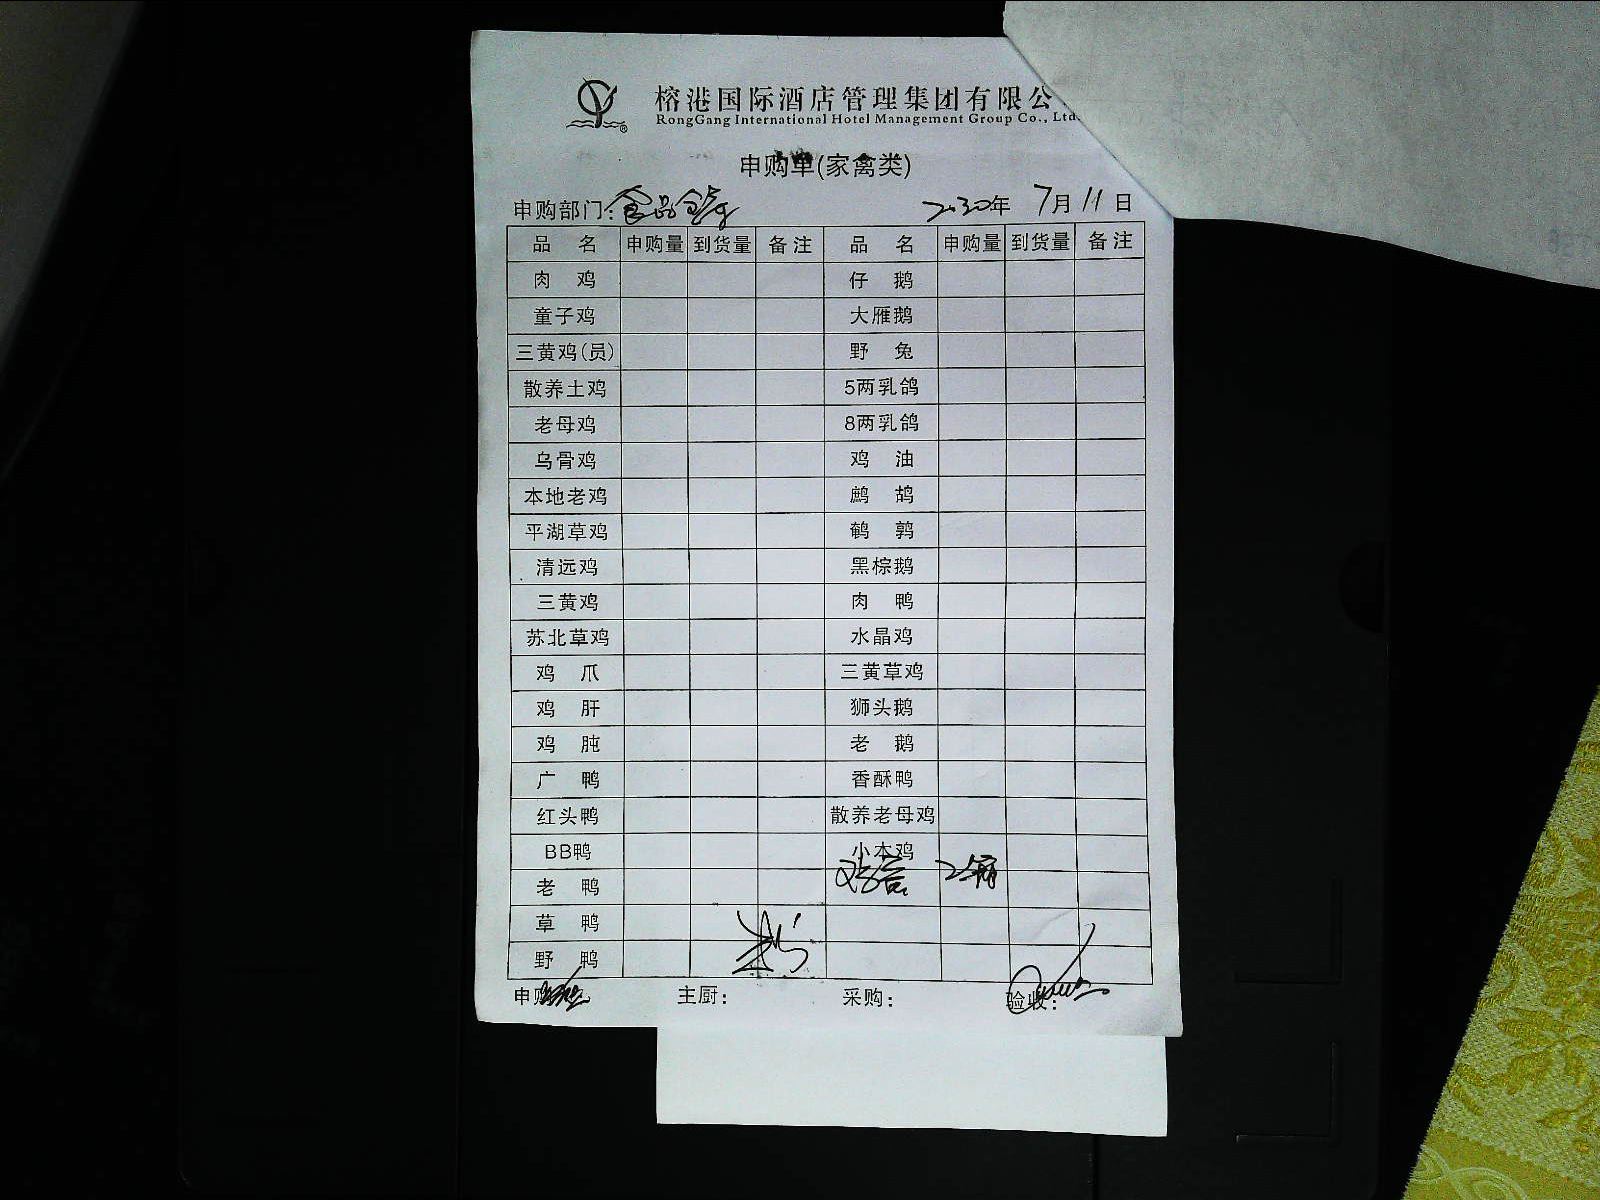 榕港国际酒店管理集团有限公
RongGang International Hotel Management Group Co., Ltd
申购单(家禽类)
申购部门: 食品 年 7月 11日
品 名 申购量 到货量 备注 品 名 申购量 到货量 备注
肉 鸡 仔 鹅
童子鸡 大雁鹅
三黄鸡(员) 野 兔
散养土鸡 5两乳鸽
老母鸡 8两乳鸽
乌骨鸡 鸡 油
本地老鸡 鹧 鸪
平湖草鸡 鹌 鹑
清远鸡 黑棕鹅
三黄鸡 肉 鸭
苏北草鸡 水晶鸡
鸡 爪 三黄草鸡
鸡 肝 狮头鹅
鸡 肫 老 鹅
广 鸭 香酥鸭
红头鸭 散养老母鸡
BB鸭 小本鸡
老 鸭
草 鸭
野 鸭
申购 主厨: 采购: 验收: